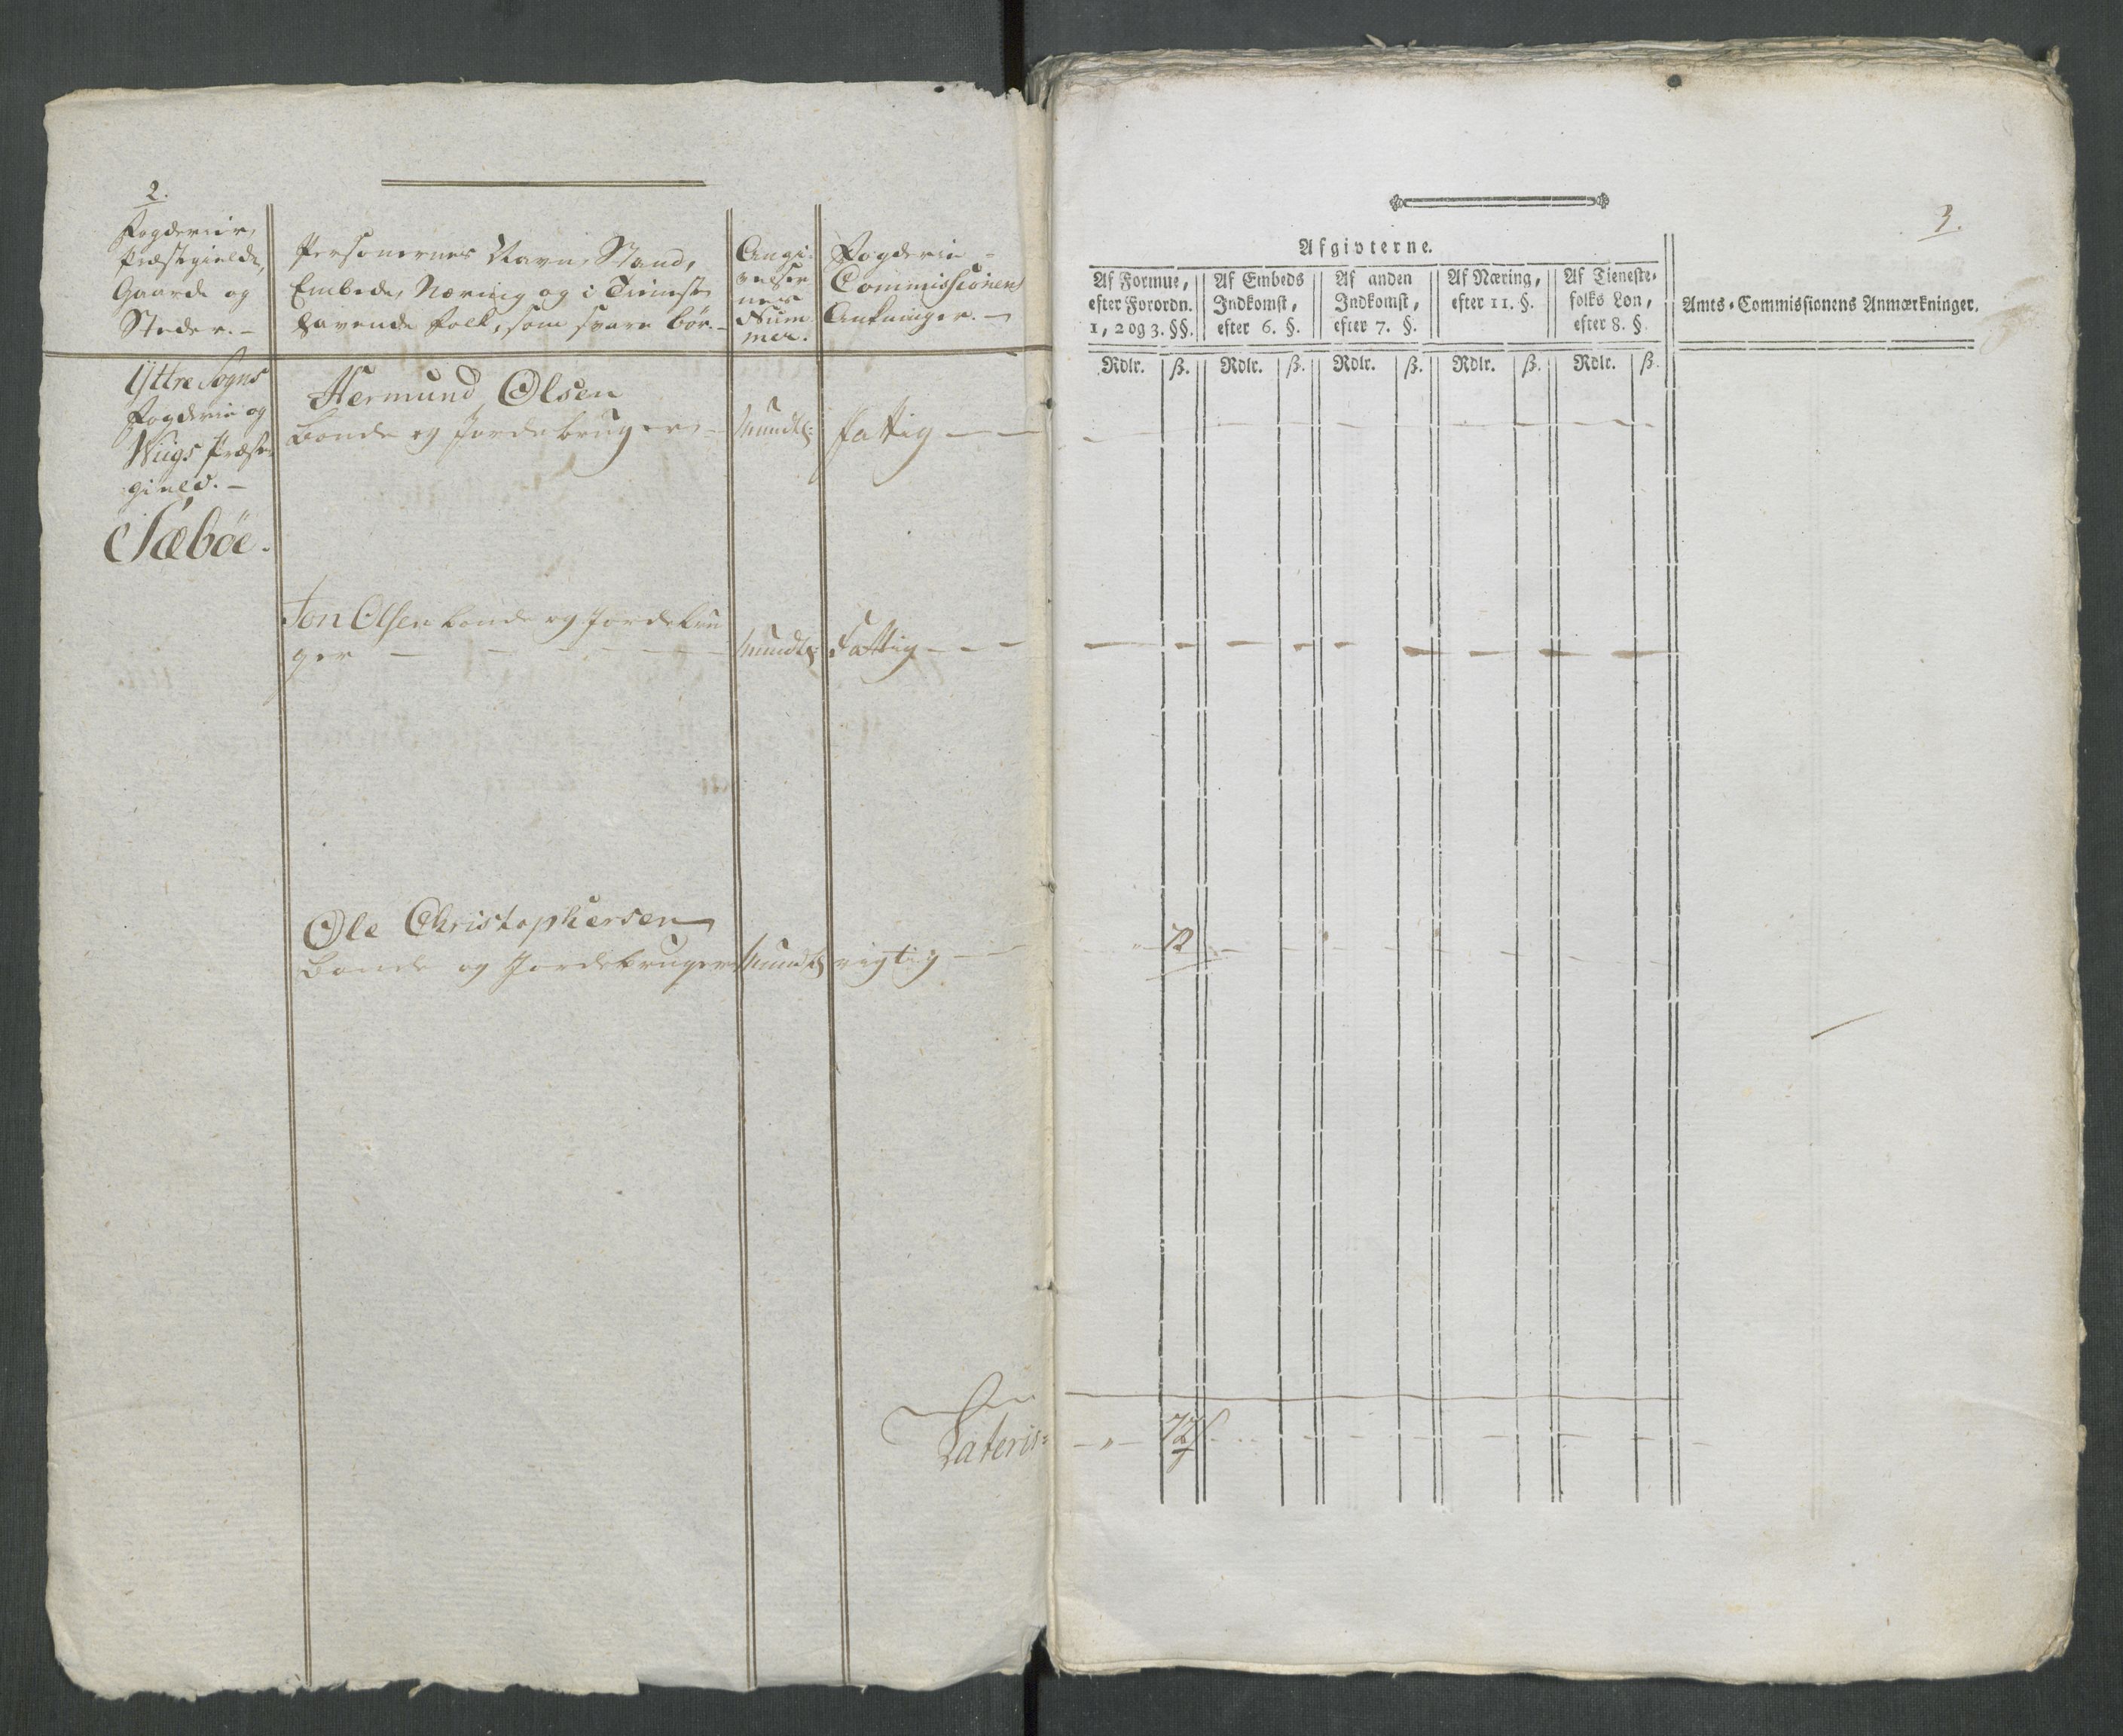 2.
Fogderier,
Præstegielde,
Gaarde og
Steder. –
Personernes Navn, Stand,
Embede, Næring og i Tieneste
havende Folk, som svare bør. –
Angi-
velser
nes
Num
mer.
Fogderie-
Commissionens
Antegninger. –
Yttre Sogns
Fogderie og
Wiigs Præste
gield. –
Sæbøe.
Hermund Olsen
Bonde og Jordebruger
Mundtl:
fattig
Jon Olsen bonde og Jordebru
ger
Mundtl:
Fattig
Ole Christophersen
Bonde og Jordebruger
Mundtl
rigtig
Lateris
3.
Afgivterne.
Af Formue,
efter Forordn.
1, 2 og 3. §§.
Af Embeds
Indkomst,
efter 6. §.
Af anden
Indkomst,
efter 7. §.
Af Næring,
efter 11. §.
Af Tieneste-
folks Løn,
efter 8. §.
Amts-Commissionens Anmærkninger.
Rdlr. ß. Rdlr. ß. Rdlr. ß. Rdlr. ß. Rdlr. ß.
72
72